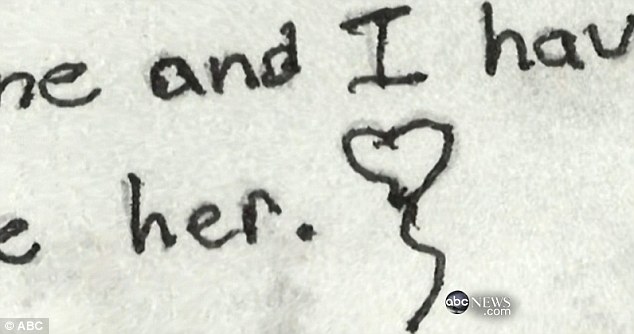 ne and I hav
e her.
abc NEWS
.com
© ABC